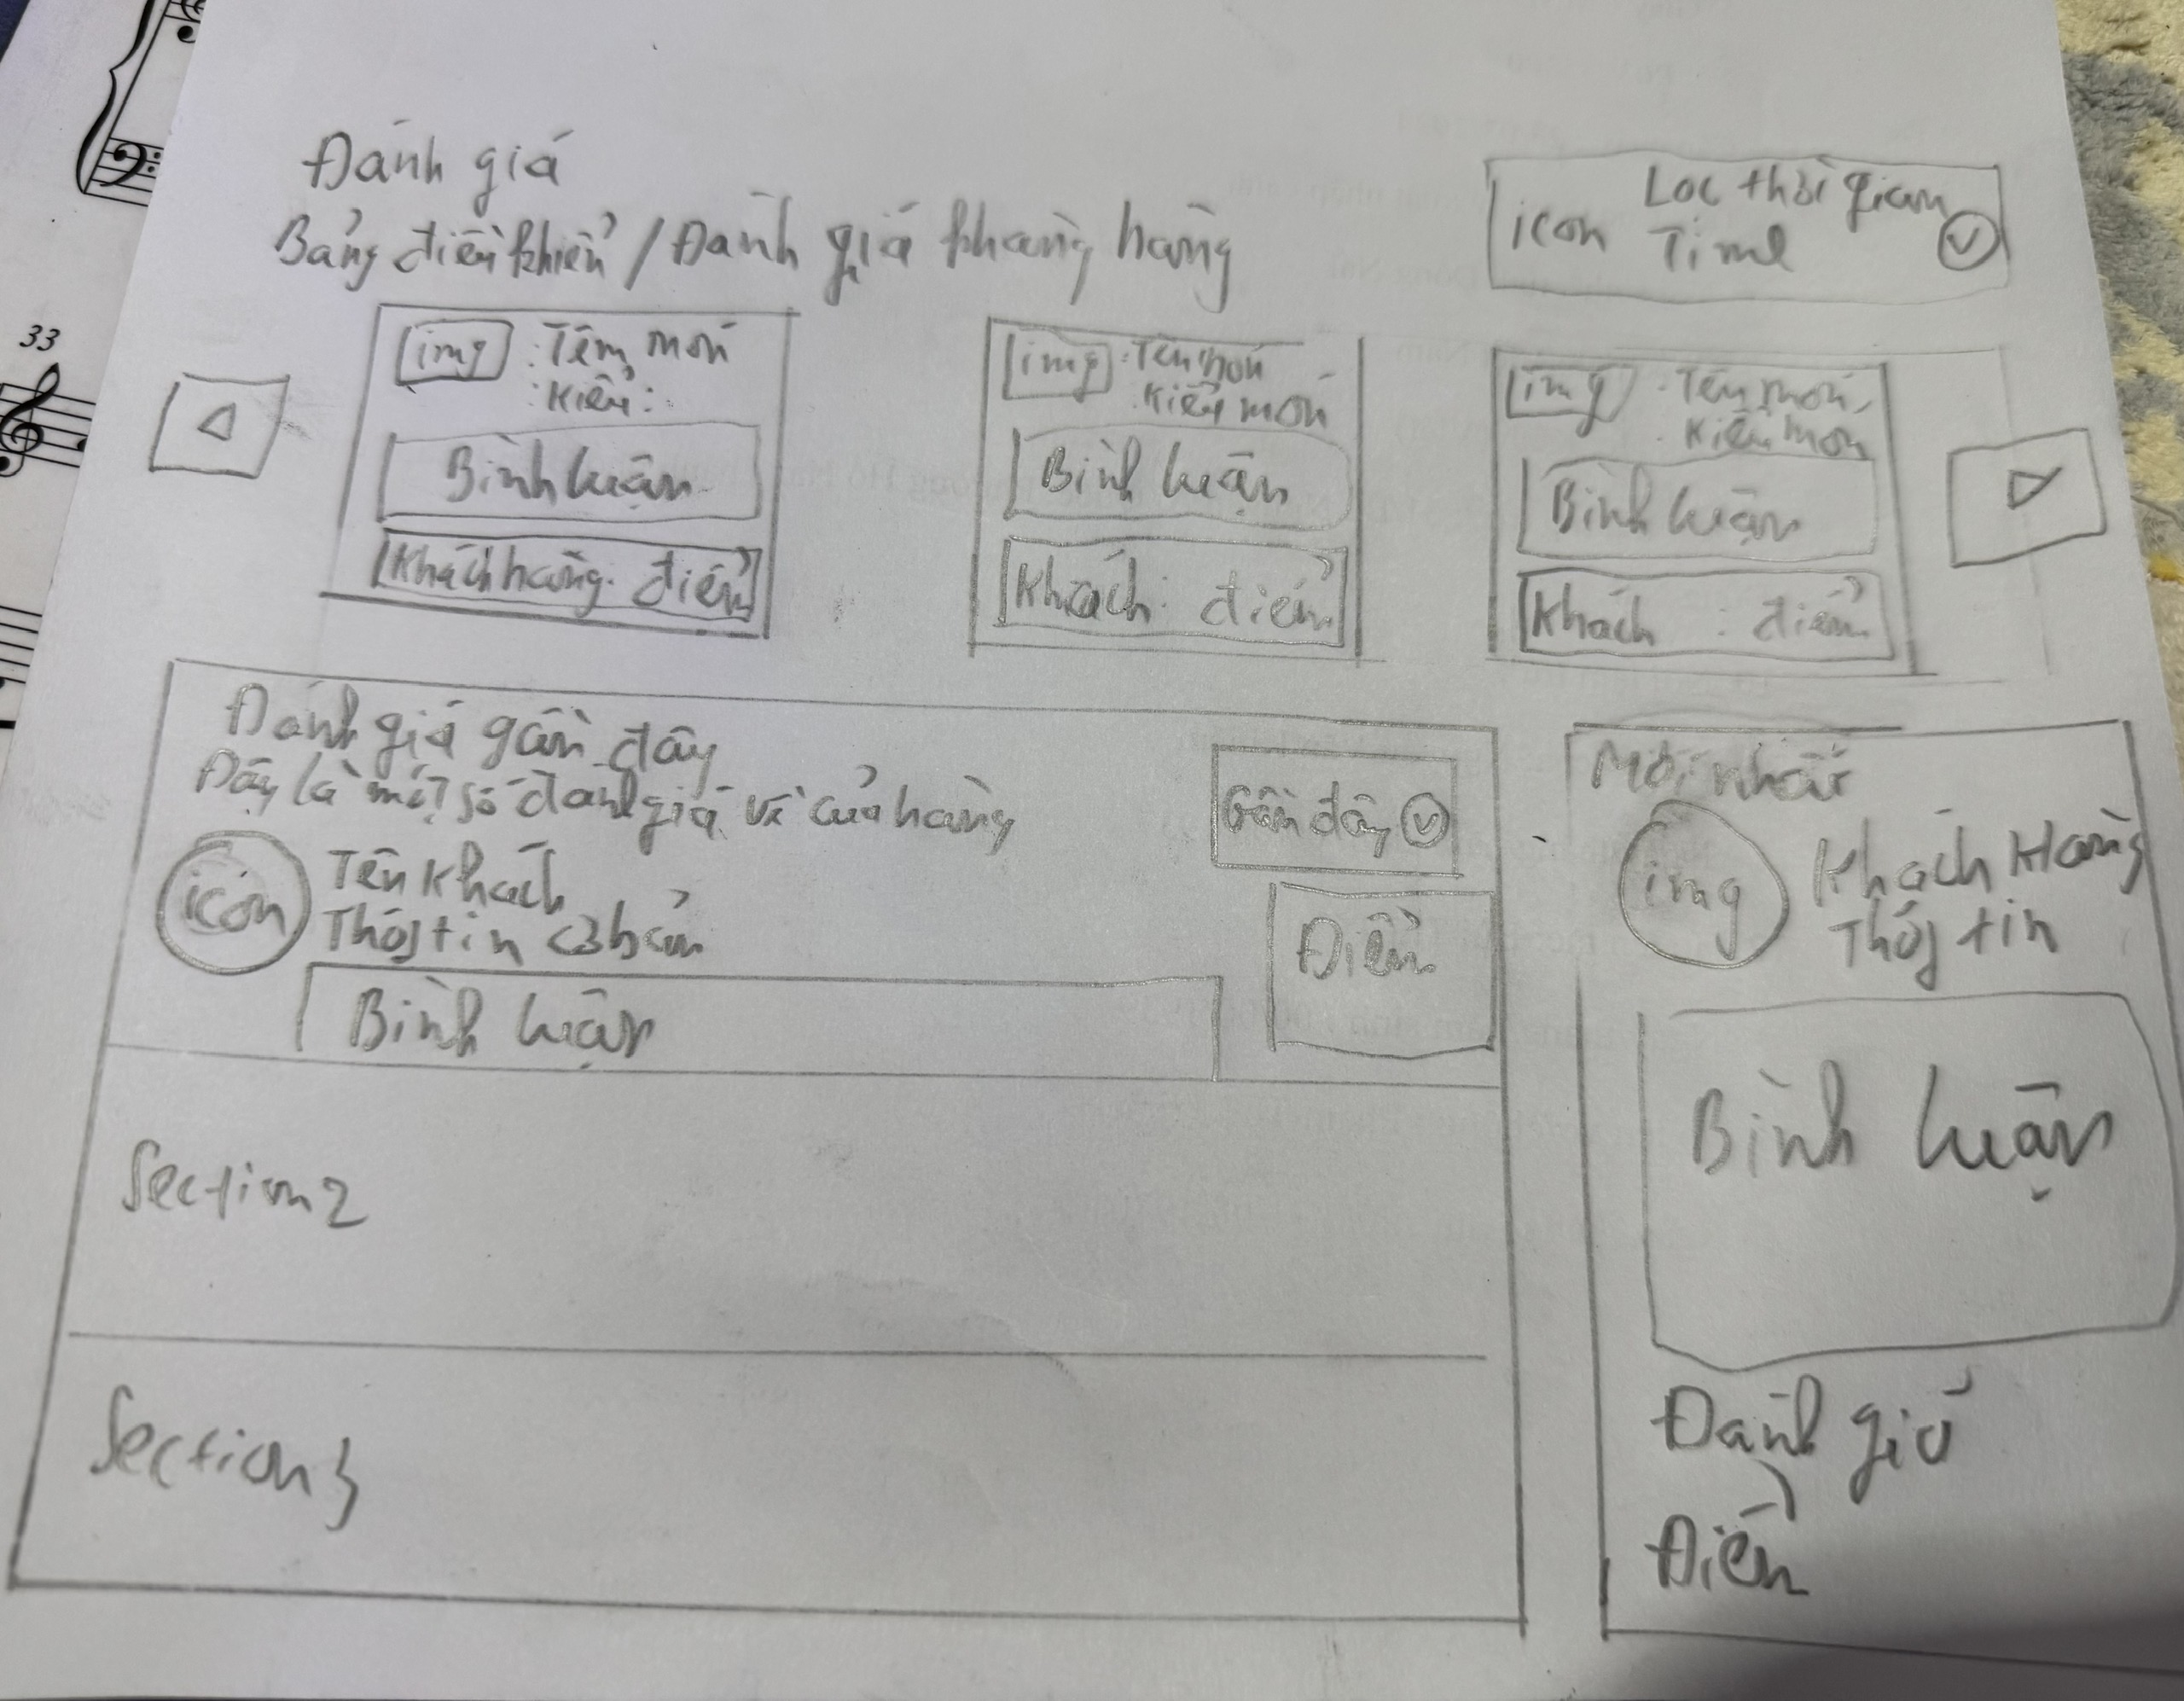 Đánh giá
Bảng điều khiển / Đánh giá khang hàng
icon Loc thời gian
Time
33
img : Tên món
: Kiểu :
Bình luận
Khách hàng. điểm
img : Tên món
Kiểu món
Bình luận
Khách : điểm
img . Tên món
. Kiểu món
Bình luận
Khách : điểm
Đánh giá gần đây
Đây là một số đánh giá về cửa hàng
Gần đây
icon
Tên Khách
Thôg tin cơ bản
Điểm
Bình luận
Section 2
Section 3
Mới nhất
img
Khách Hàng
Thôg tin
Bình luận
Đánh giá
Điểm